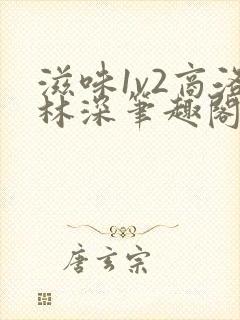 滋味1v2高洛
林深笔趣阁
唐玄宗